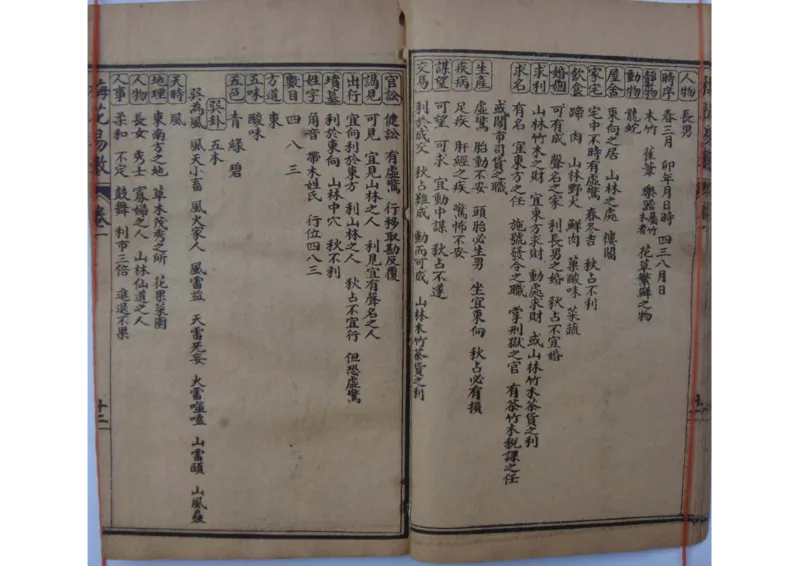 人物 長男
時序 春三月 卯年月日時 四三八月日
靜物 木竹 萑葦 樂器屬竹木者 花草繁鮮之物
動物 龍蛇
屋舍 東向之居 山林之處 樓閣
家宅 宅中不時有虛驚 春冬吉 秋占不利
飲食 蹄 肉 山林野火 鮮肉 菓酸味 菜蔬
婚姻 可有成 聲名之家 利長男之婚 秋占不宜婚
求利 山林竹木之財 宜東方求財 動處求財 或山林竹木茶貨之利
求名 有名 宜東方之任 施號發令之職 掌刑獄之官 有茶竹木稅課之任
或鬧市司貨之職
生產 虛驚 胎動不安 頭胎必生男 坐宜東向 秋占必有損
疾病 足疾 肝經之疾 驚怖不安
謀望 可望 可求 宜動中謀 秋占不遂
交易 利於成交 秋占難成 動而可成 山林木竹茶貨之利
官訟 健訟 有虛驚 行移取勘反覆
謁見 可見 宜見山林之人 利見宜有聲名之人
出行 宜向利於東方 利山林之人 秋占不宜行 但恐虛驚
墳墓 利於東向 山林中穴 秋不利
姓字 角音 帶木姓氏 行位四八三
數目 四 八 三
方道 東
五味 酸味
五色 青 綠 碧
巽卦 五木
巽為風 風天小畜 風火家人 風雷益 天雷无妄 火雷噬嗑 山雷頤 山風蠱
天時 風
地理 東南方之地 草木茂秀之所 花果菜園
人物 長女 秀士 寡婦之人 山林仙道之人
人事 柔和 不定 鼓舞 利市三倍 進退不果
梅花易數 卷一 十二